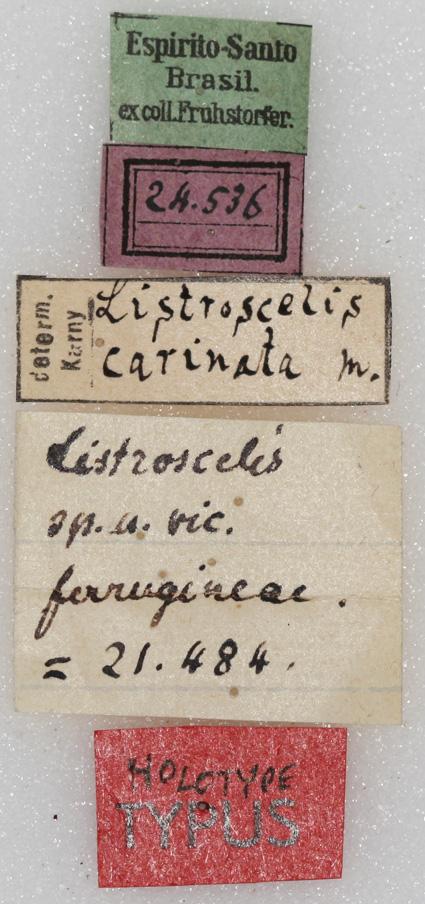 Espirito-Santo
Brasil.
ex coll. Fruhstorfer.
24.536
determ.
Karny
Listroscelis
carinata m.
Listroscelis
sp. a. vic.
ferrugineae.
= 21.484.
HOLOTYPE
TYPUS